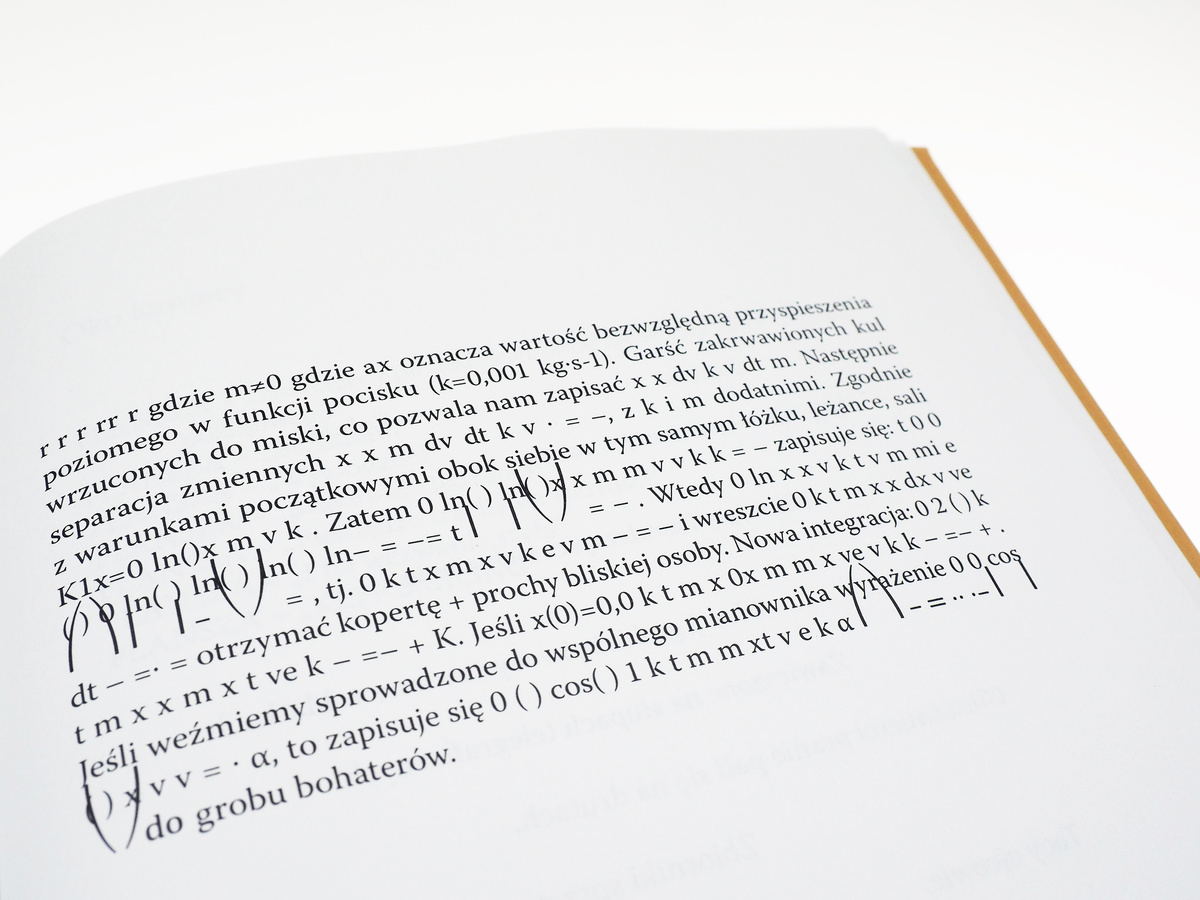 r r r rr r gdzie m≠0 gdzie ax oznacza wartość bezwzględną przyspieszenia
poziomego w funkcji pocisku (k=0,001 kg·s-1). Garść zakrwawionych kul
wrzuconych do miski, co pozwala nam zapisać x x dv k v dt m. Następnie
separacja zmiennych x x m dv dt k v · = −, z k i m dodatnimi. Zgodnie
z warunkami początkowymi obok siebie w tym samym łóżku, leżance, sali
K1x=0 ln()x m v k . Zatem 0 ln( ) ln( )x x m m v v k k = − zapisuje się: t 0 0
( ) 0 ln( ) ln( ) ln( ) ln− = −= t = − . Wtedy 0 ln x x v k t v m mi e
− = , tj. 0 k t x m x v k e v m − = − i wreszcie 0 k t m x x dx v ve
dt − =· = otrzymać kopertę + prochy bliskiej osoby. Nowa integracja: 0 2 ( ) k
t m x x m x t ve k − =− + K. Jeśli x(0)=0,0 k t m x 0x m m x ve v k k − =− + .
Jeśli weźmiemy sprowadzone do wspólnego mianownika wyrażenie 0 0 cos
( ) x v v = · α, to zapisuje się 0 ( ) cos( ) 1 k t m m xt v e k α − = ·· ·−
do grobu bohaterów.